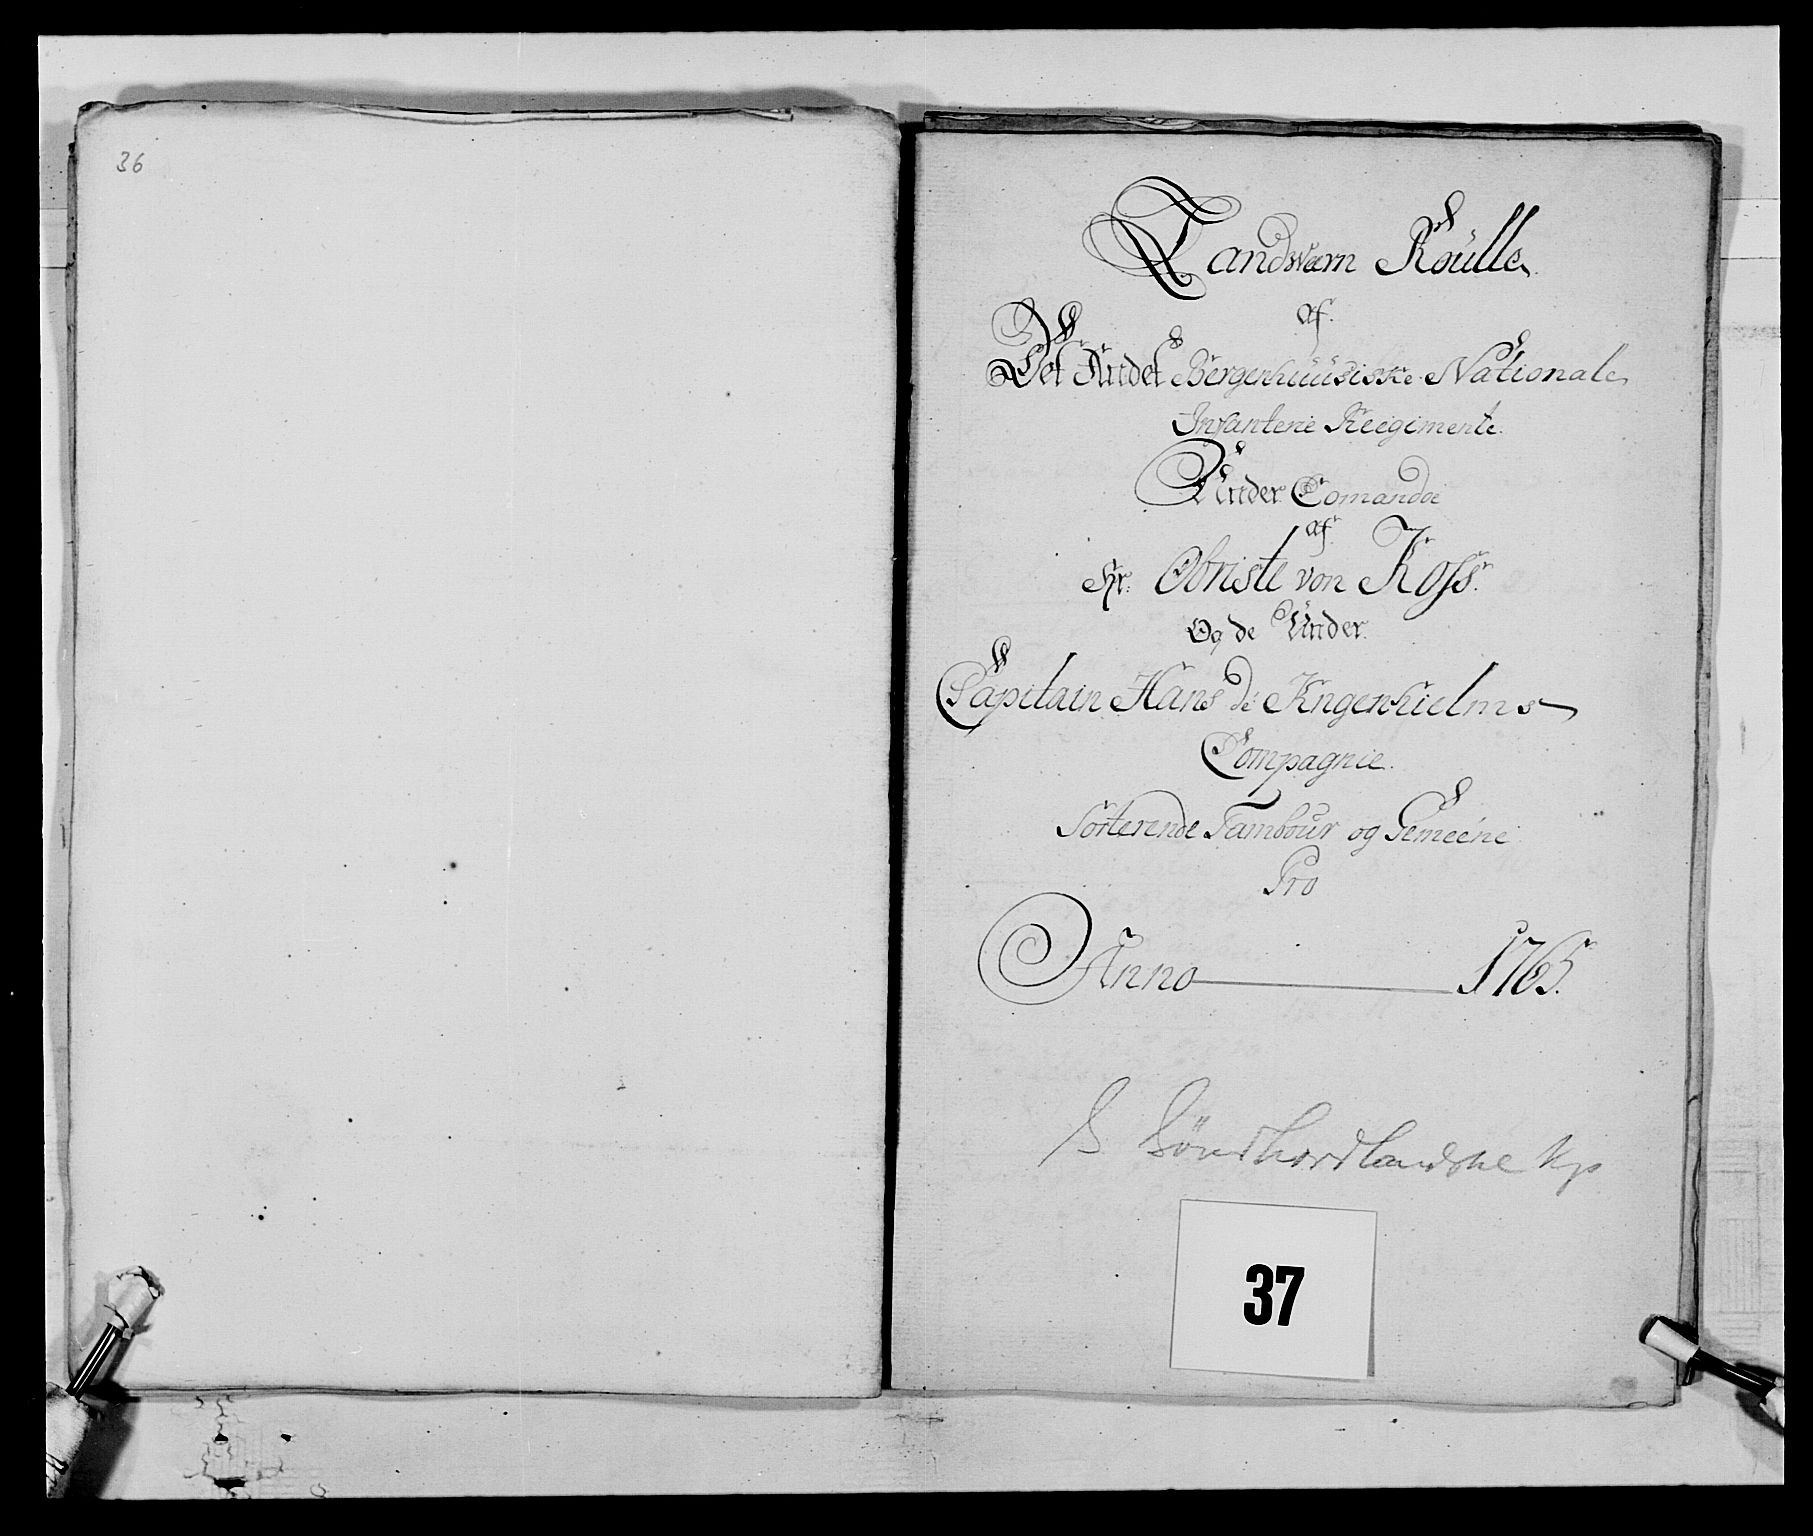 36
Landsværn Roulle
af.
Det Andet Bergenhuusiske Nationale
Infanterie Reegimente.
Under Comando
af
Hr. Obriste von Koss.
Og de Under
Capitain Hans de Kngenhielms
Compagnie.
Sorterende Tambour og Gemeene
Pro
Anno 1765.
S Söndhordlandske Kp
37